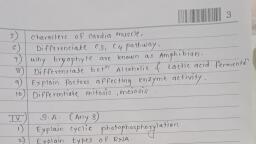 3
5) Characters of Cardia muscle.
6) Differenciate C3, C4 pathway.
7) Why bryophyte are known as Amphibian.
8) Differentiate betn Alcoholic & Lactic acid fermentn
9) Explain factors affecting enzyme activity.
10) Differntiate mitosis, meiosis
IV S.A. (Any 3)
1) Explain cyclic photophosphorylation
2) Explain types of RNA